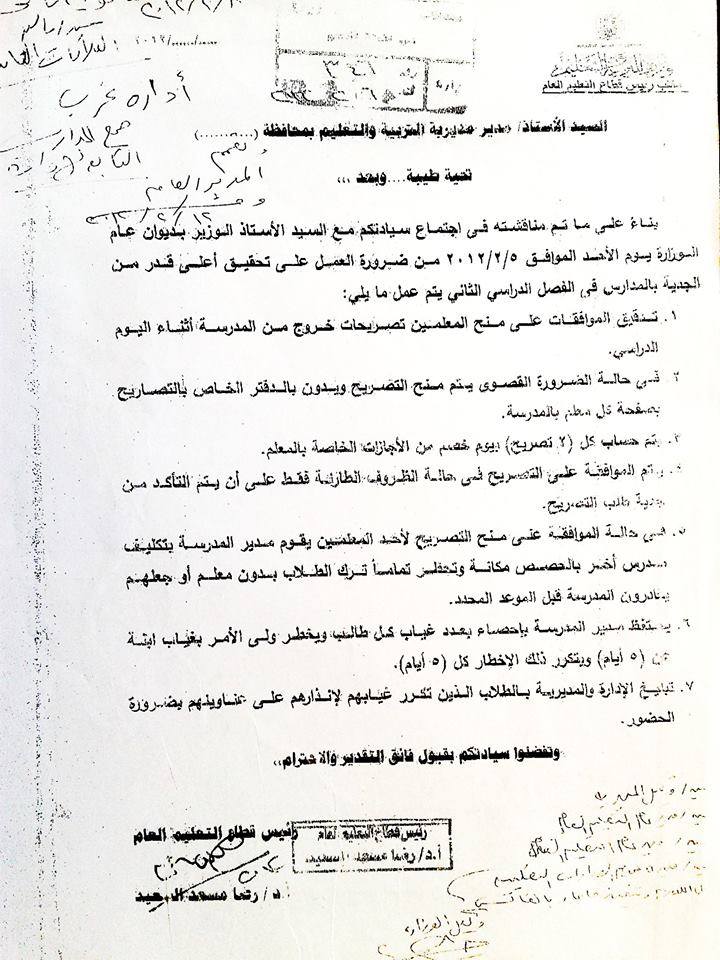 وزارة التربية والتعليم
مكتب رئيس قطاع التعليم العام
أداره غرب
السيد الأستاذ/ مدير مديرية التربية والتعليم بمحافظة (..........)
تحية طيبة.... وبعد ،،،
بناء على ما تم مناقشته فى اجتماع سيادتكم مع السيد الأستاذ الوزير بديوان عام
الوزارة يوم الأحد الموافق ٢٠١٢/٢/٥ من ضرورة العمل على تحقيق أعلى قدر من
الجدية بالمدارس فى الفصل الدراسي الثاني يتم عمل ما يلي:
١. تدقيق الموافقات على منح المعلمين تصريحات خروج من المدرسة أثناء اليوم
الدراسي.
٢. فى حالة الضرورة القصوى يتم منح التصريح ويدون بالدفتر الخاص بالتصاريح
بصفحة كل معلم بالمدرسة.
٣. يتم حساب كل (٢ تصريح) بيوم خصم من الأجازات الخاصة بالمعلم.
٤. يتم الموافقة على التصريح فى حالة الظروف الطارئة فقط على أن يتم التأكد من
جدية طلب التصريح.
٥. فى حالة الموافقة على منح التصريح لأحد المعلمين يقوم مدير المدرسة بتكليف
مدرس أخر بالحصص مكانة وتحظر تماماً ترك الطلاب بدون معلم أو جعلهم
يغادرون المدرسة قبل الموعد المحدد.
٦. يحتفظ مدير المدرسة بإحصاء بعدد غياب كل طالب ويخطر ولى الأمر بغياب ابنة
عن (٥ أيام) ويتكرر ذلك الإخطار كل (٥ أيام).
٧. تبليغ الإدارة والمديرية بالطلاب الذين تكرر غيابهم لإنذارهم على عناوينهم بضرورة
الحضور.
وتفضلوا سيادتكم بقبول فائق التقدير والاحترام،،
رئيس قطاع التعليم العام
أ.د/ رضا مسعد السعيد
رئيس قطاع التعليم العام
أ.د/ رضا مسعد السعيد